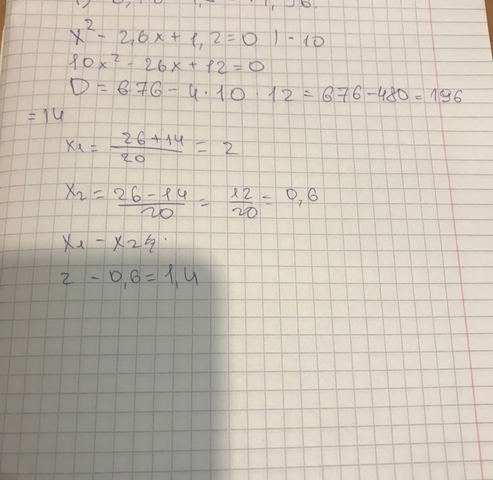 x² - 2,6x + 1,2 = 0 | · 10
10x² - 26x + 12 = 0
D = 676 - 4 · 10 · 12 = 676 - 480 = 196
= 14
x₁ = 26 + 14 / 20 = 2
x₂ = 26 - 14 / 20 = 12 / 20 = 0,6
x₁ - x₂
2 - 0,6 = 1,4